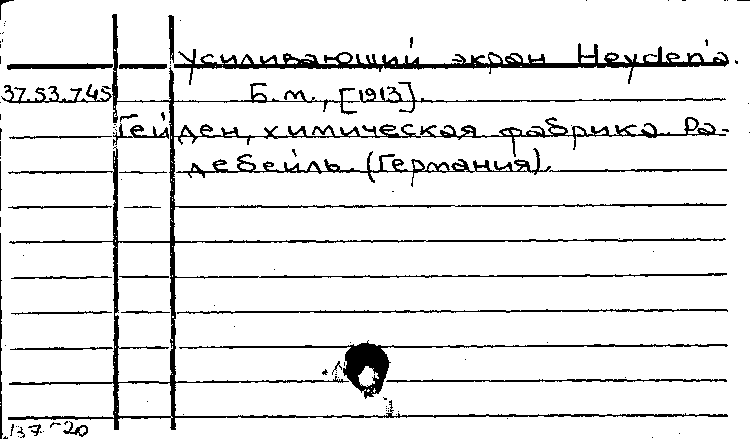 Усиливающий экран Heyden'а.
37.53.7.45
Б. м., [1913].
Гейден, химическая фабрика. Ра-
дебейль. (Германия).
137-20